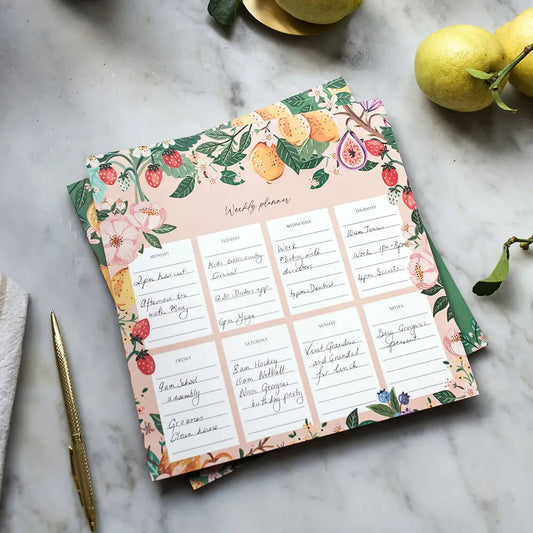 Weekly planner
MONDAY
2pm haircut
Afternoon tea
with Mary
TUESDAY
Kids extracurricular
Carnival
12.30
appt
6pm Yoga
WEDNESDAY
Work
Meeting with
directors
4pm Dentist
THURSDAY
10am Tennis
Work 1pm-3pm
4pm Scouts
FRIDAY
9am School
assembly
Groceries
Clean house
SATURDAY
8am Hockey
10am Netball
Noon Georgias
birthday party
SUNDAY
Visit Grandma
and Grandad
for lunch
NOTES
Buy Georgias
present